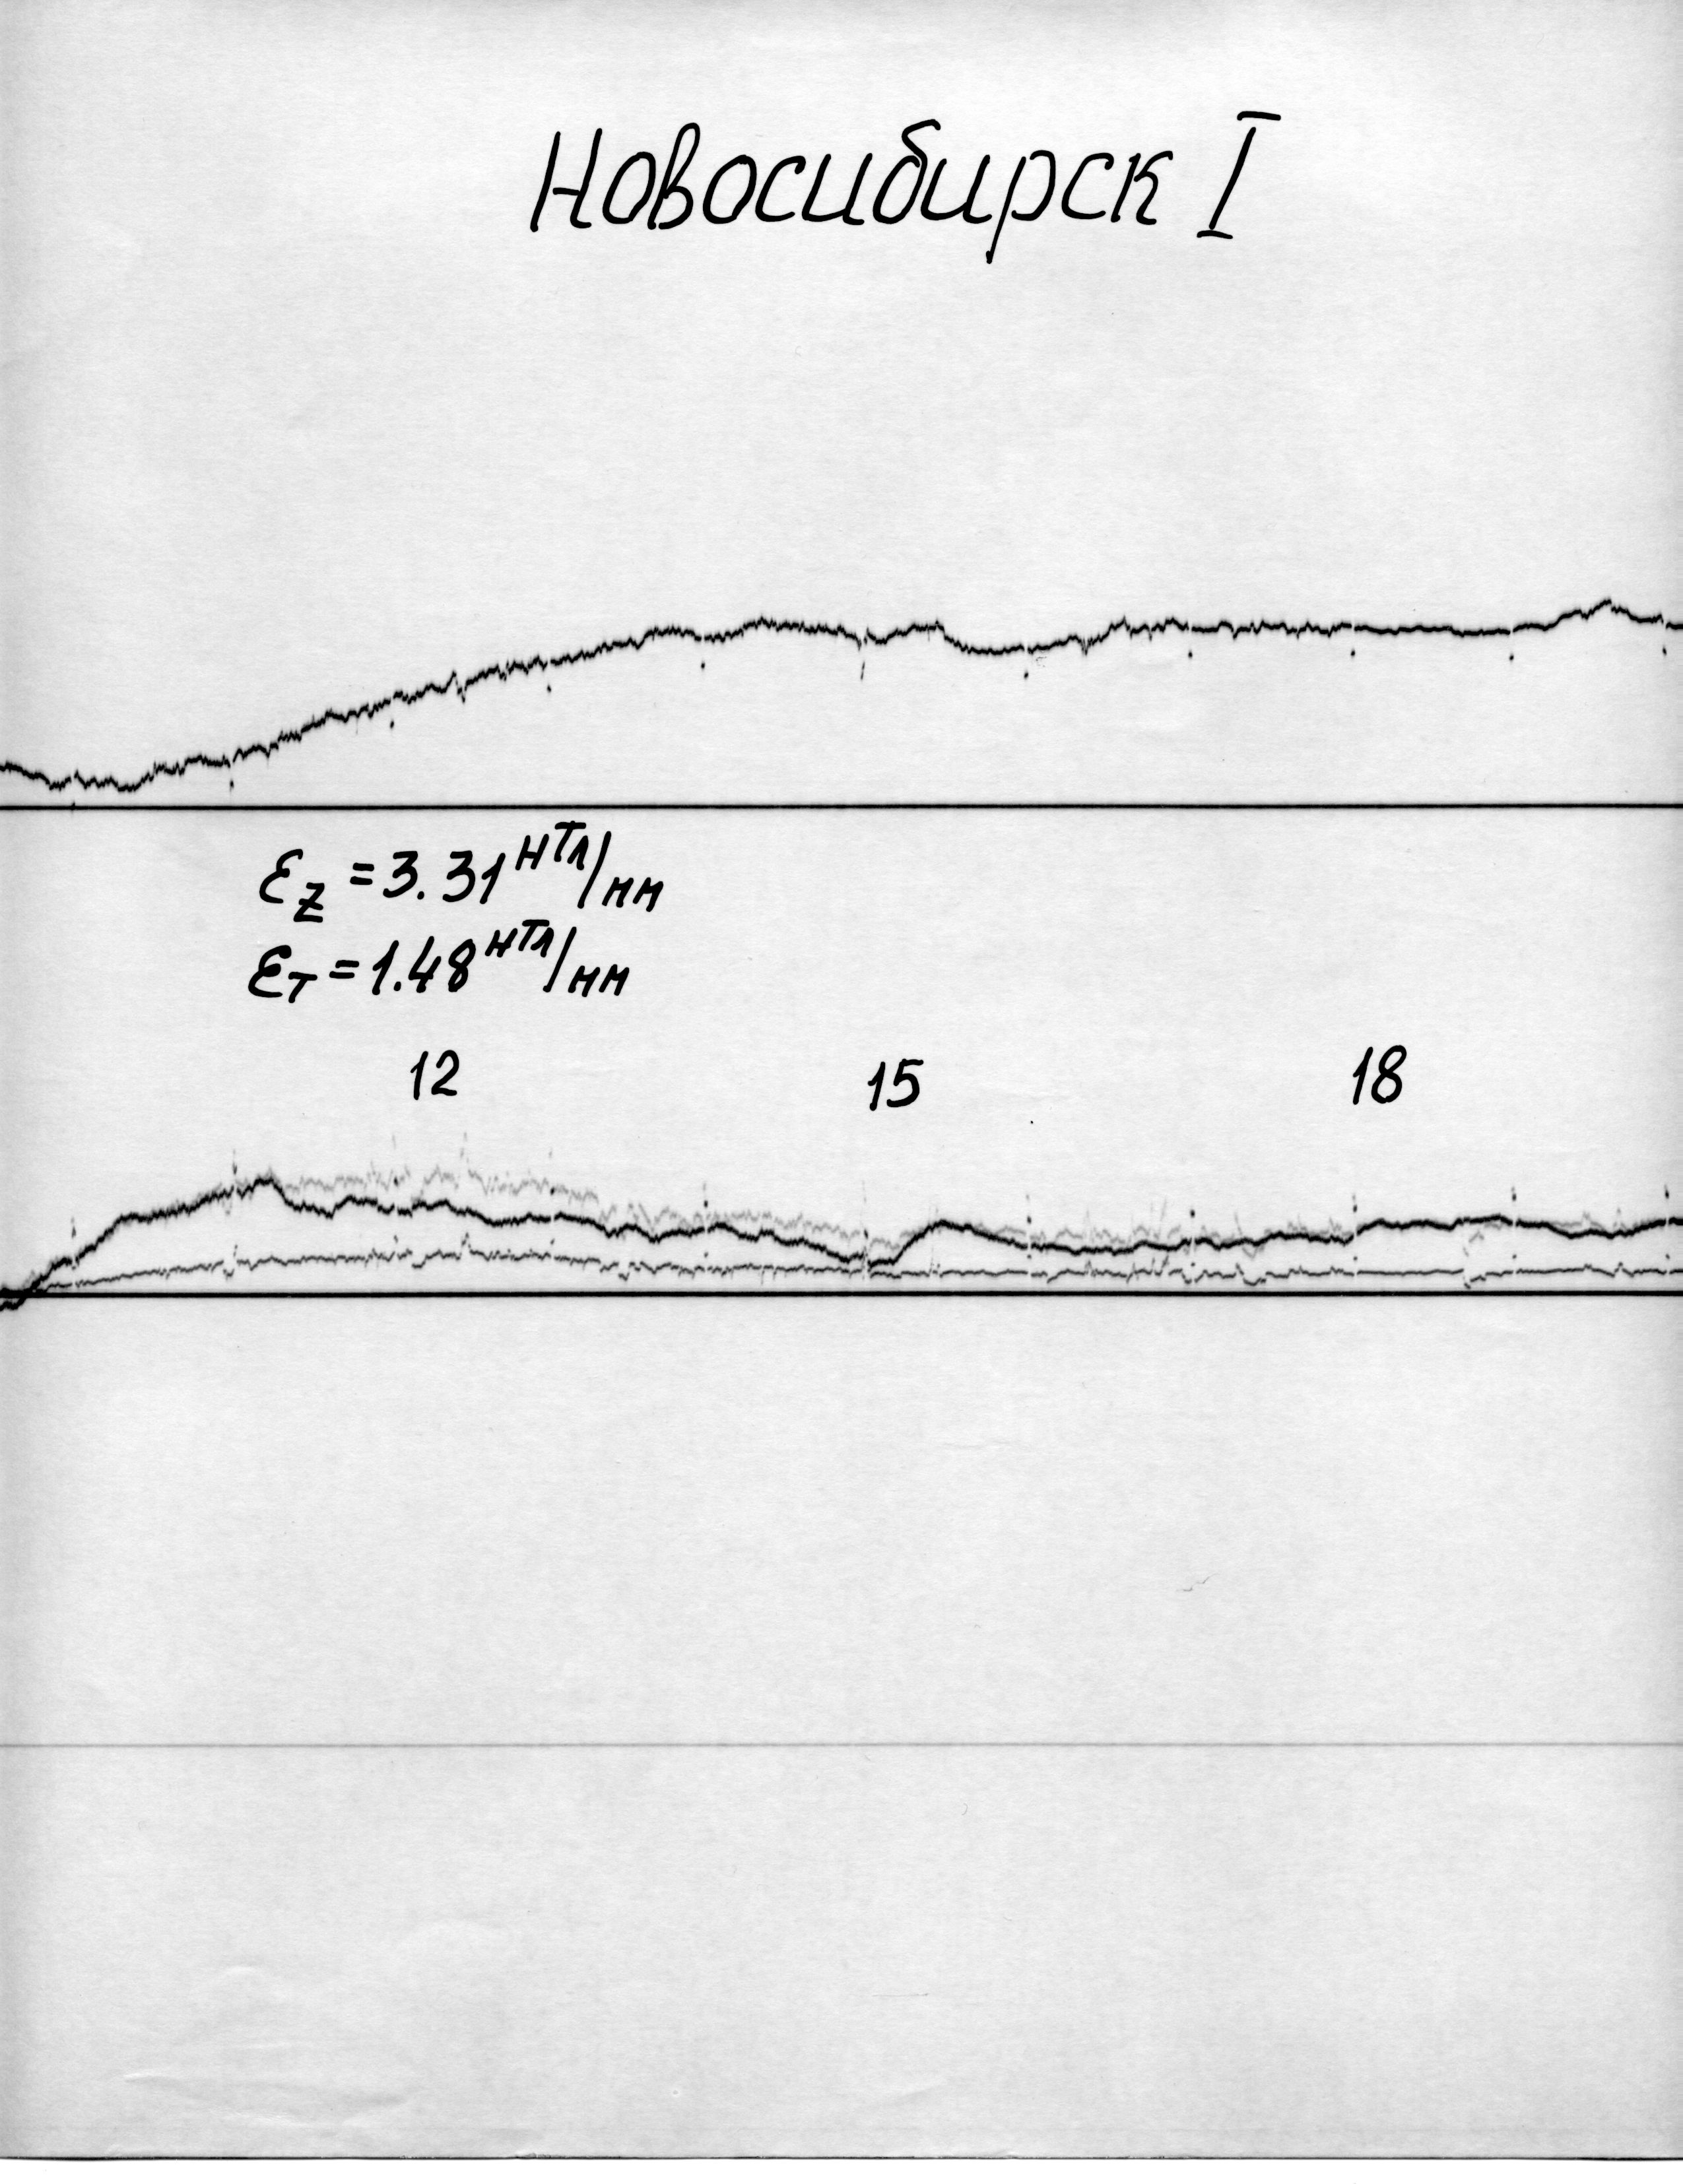 Новосибирск I
Ɛz = 3.31 нТл/мм
Ɛт = 1.48 нТл/мм
12 15 18